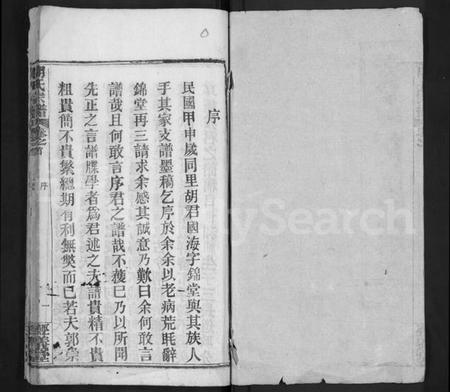 序
民國甲申歲同里胡君國海字錦堂與其族人
手其家支譜墨稿乞序於余余以老病荒眊辭
錦堂再三請求余感其誠意乃歎曰余何敢言
譜哉且何敢言序君之譜哉不獲已乃以所聞
先正之言譜牒學者為君述之夫譜貴精不貴
粗貴簡不貴繁總期有利無弊而已若夫郭崇
胡氏宗譜
卷之首
序
MySearch